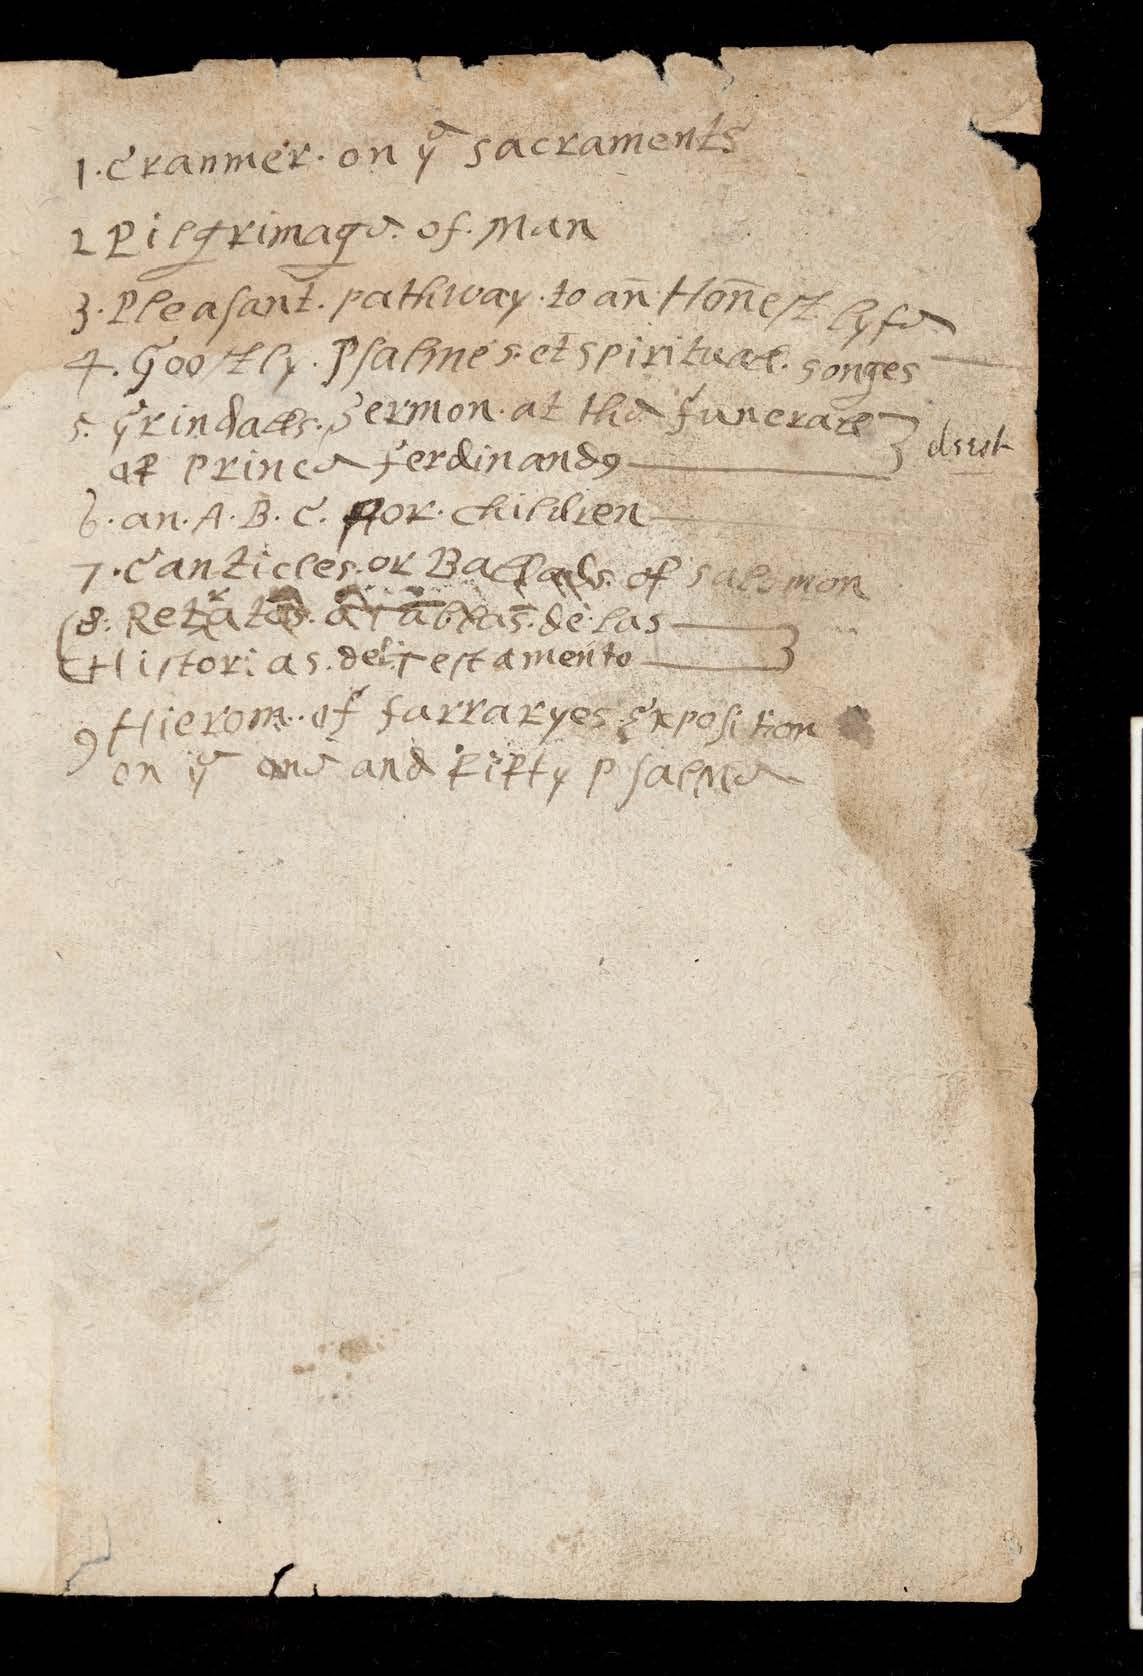 1. Cranmer. on yᵉ sacraments
2 Pilgrimage. of. Man
3. Pleasant. pathway. to an̄ Hon̄est lyfe
4. Goostly. Psalmes. et spiritual. songes
5. Grindalls. Sermon. at the funerall
of Prince Ferdinando
6. an. A. B. C. for. children
7. Canticles. or Ballads. of Salomon
8. Retratos. o Tablas. de. las
Historias. del. Testamento
9 Hierom. of farraryes Exposition
on yᵉ one and fifty psalme